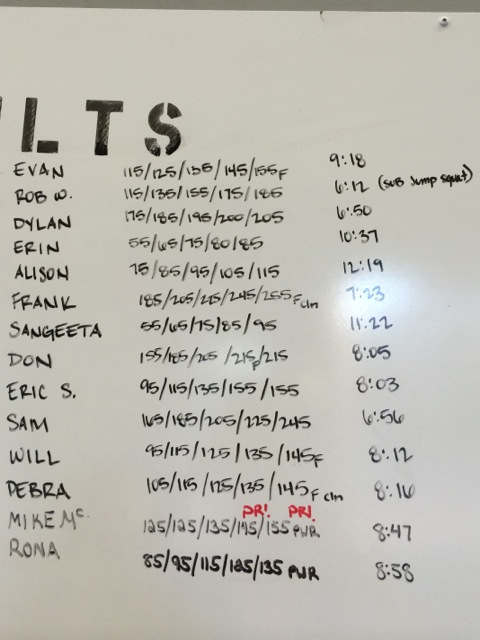 ULTS
EVAN 115/125/135/145/155F 9:18
ROB W. 115/135/155/175/185 6:12 (SUB Jump squat)
DYLAN 175/185/195/200/205 6:50
ERIN 55/65/75/80/85 10:37
ALISON 75/85/95/105/115 12:19
FRANK 185/205/225/245/255F cln 7:23
SANGEETA 55/65/75/85/95 11:22
DON 155/185/205/215F/215 8:05
ERIC S. 95/115/135/155/155 8:03
SAM 165/185/205/225/245 6:56
WILL 95/115/125/135/145F 8:12
DEBRA 105/115/125/135/145F cln 8:16
PR! PR!
MIKE Mc. 125/125/135/145/155 PWR 8:47
RONA 85/95/115/125/135 PWR 8:58